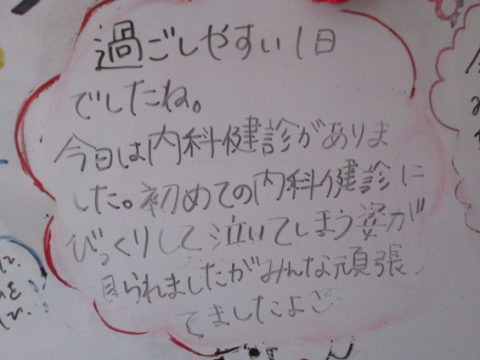 過ごしやすい1日
でしたね。
今日は内科健診がありま
した。初めての内科健診に
びっくりして泣いてしまう姿が
見られましたがみんな頑張っ
てましたよ